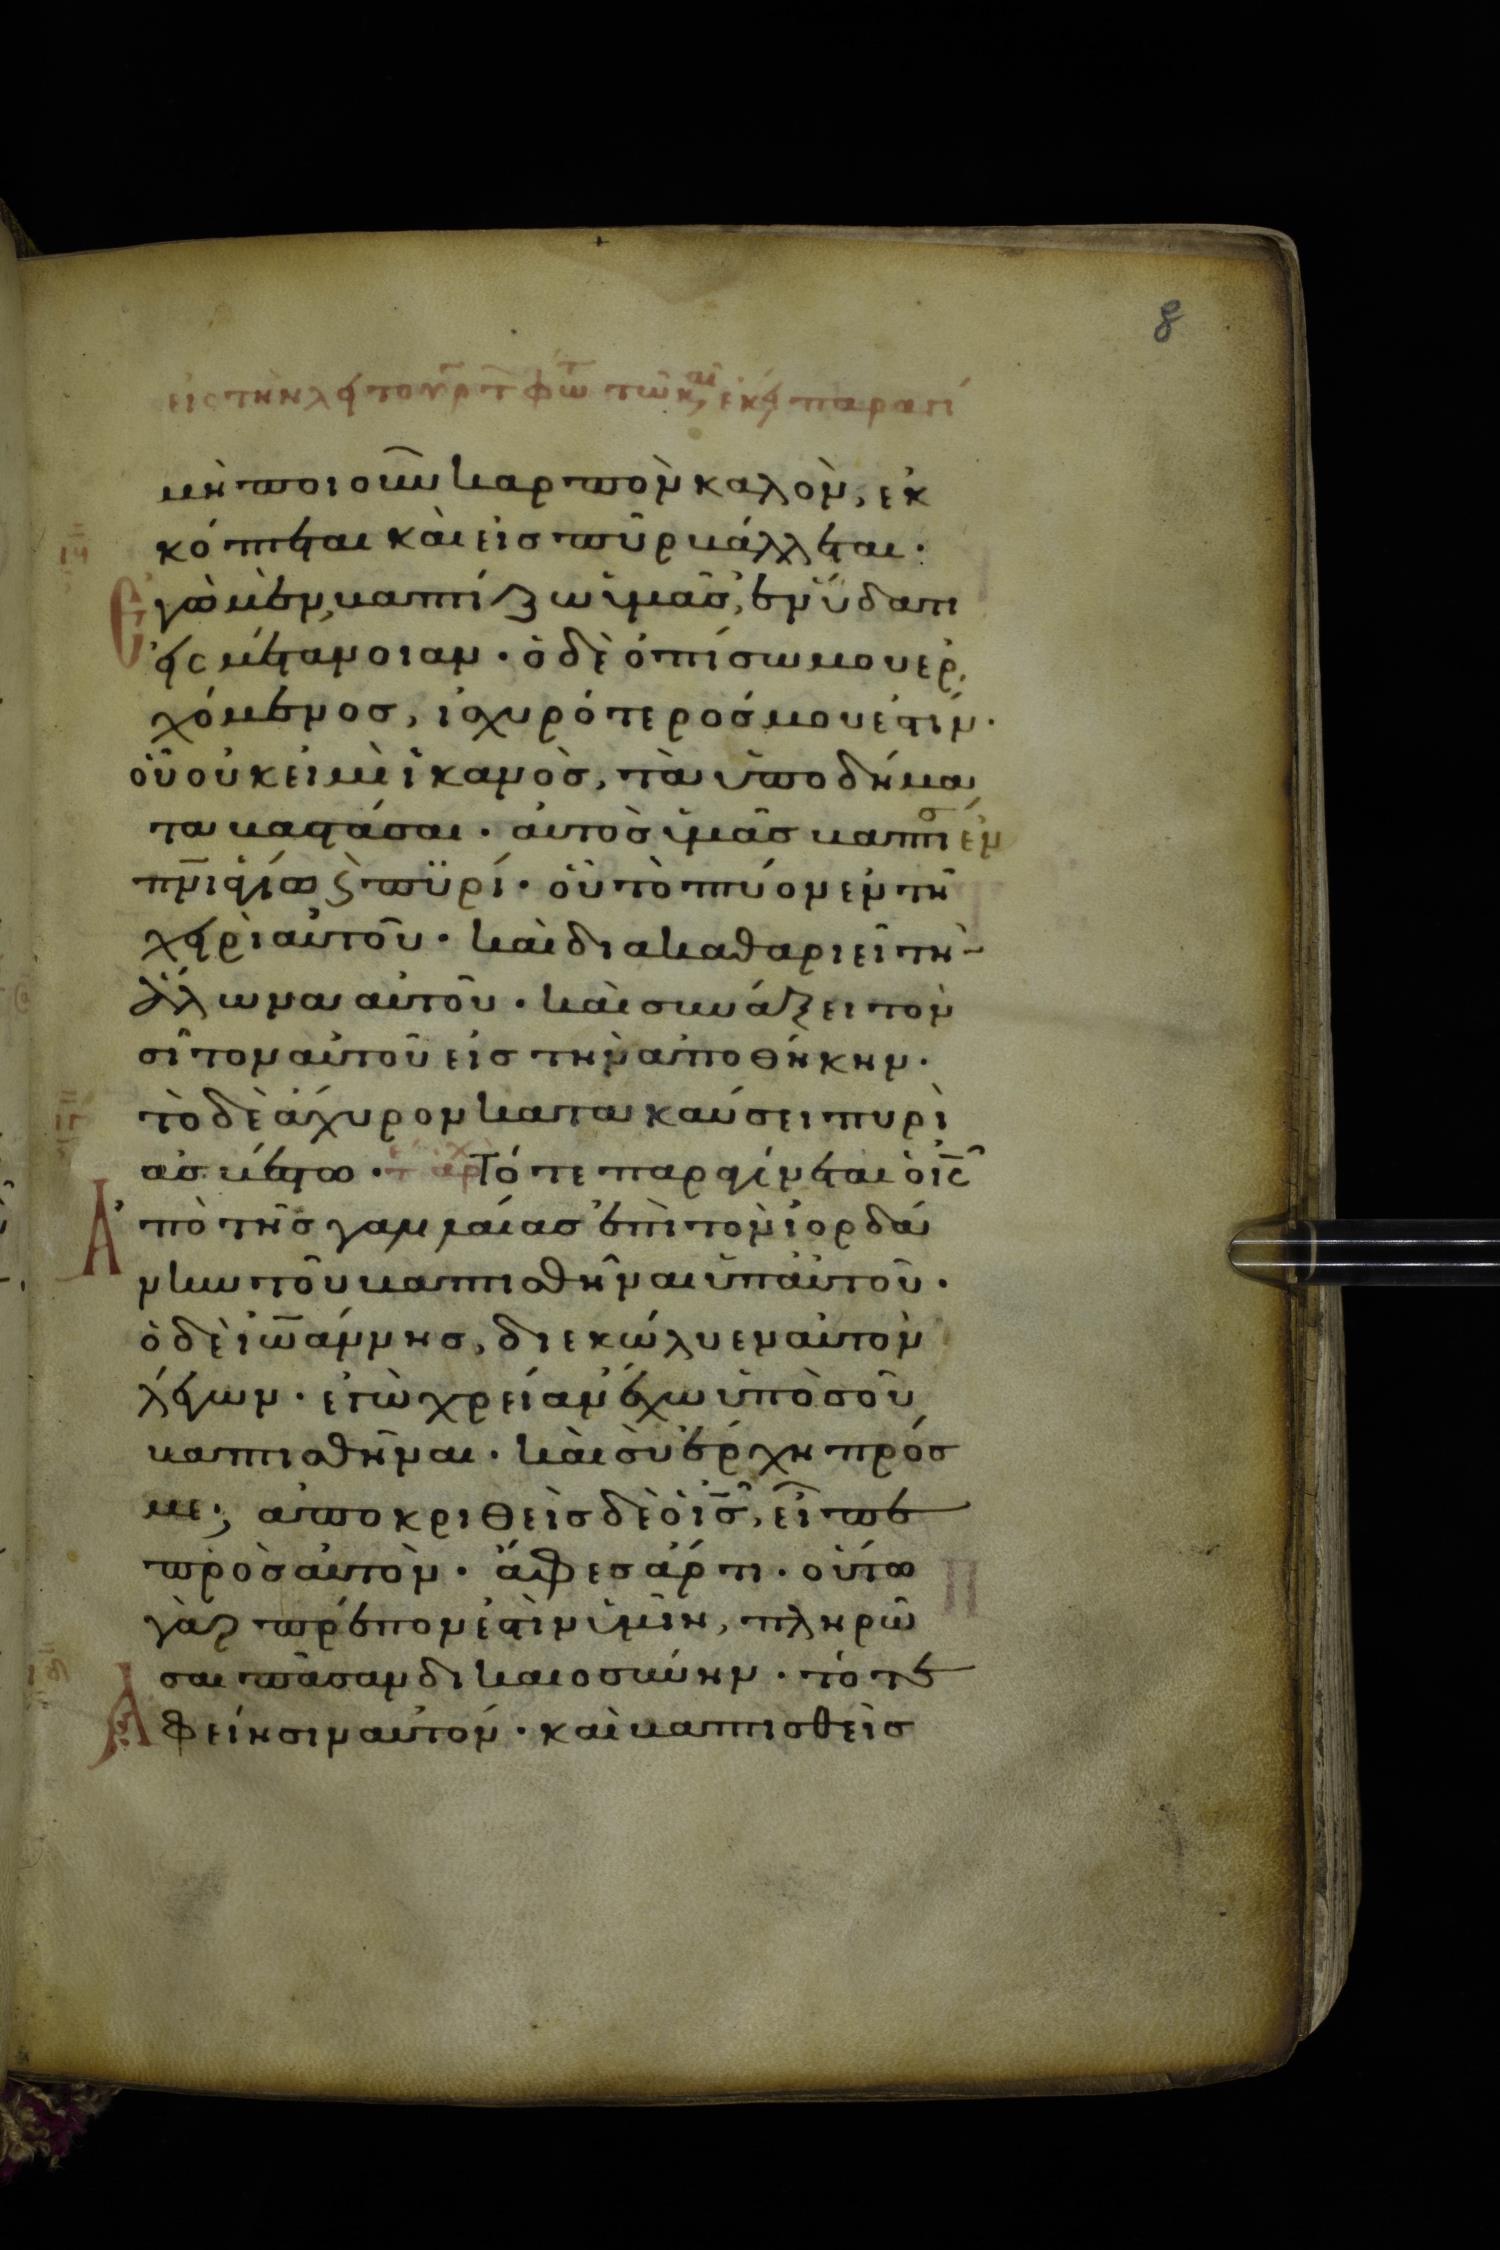 εἰς τὴν
8
μὴ ποιοῦν καρπὸν καλὸν, ἐκ
κόπτεται καὶ εἰς πῦρ βάλλεται·
Ἐγὼ μὲν βαπτίζω ὑμᾶς, ἐν ὕδατι
εἰς μετάνοιαν· ὁ δὲ ὀπίσω μου ἐρ
χόμενος, ἰσχυρότερός μου ἐστίν·
οὗ οὐκ εἰμὶ ἱκανὸς, τὰ ὑποδήμα
τα βαστάσαι· αὐτὸς ὑμᾶς βαπτίσ ἐν
πν̅ι ἁγίω ϗ πϋρί· οὗ τὸ πτύον ἐν τῆ
χειρὶ αὐτοῦ· καὶ διακαθαριεῖ τὴν
ἅλωνα αὐτοῦ· καὶ συνάξει τὸν
σῖτον αὐτοῦ εἰς τὴν ἀποθήκην·
τὸ δὲ ἄχυρον κατακαύσει πυρὶ
ἀσβέστω· Τότε παραγίνεται ὁ ι̅ς̅
Ἀπὸ τῆς γαλιλαίας ἐπὶ τὸν ἰορδά
νην τοῦ βαπτισθῆναι ὑπ' αὐτοῦ·
ὁ δὲ ἰω̅άννης, διεκώλυεν αὐτὸν
λέγων· ἐγὼ χρείαν ἔχω ὑπὸ σοῦ
βαπτισθῆναι· καὶ σὺ ἔρχη πρός
με; ἀποκριθεὶς δὲ ὁ ι̅ς̅, εἶπε
πρὸς αὐτὸν· ἄφες ἄρτι· οὕτω
γὰρ πρέπον ἐστὶν ὑμῖν, πληρῶ
σαι πᾶσαν δικαιοσύνην· τότε
Ἀφείησιν αὐτόν· καὶ βαπτισθεὶς